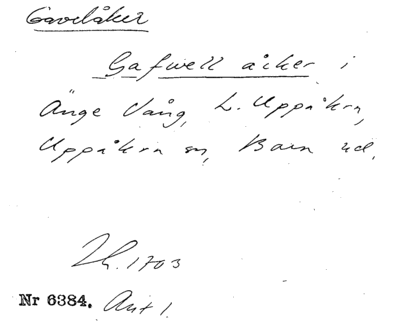 Gavelåker
Gafwell åcker i
Änge Vång, L. Uppåkra,
Uppåkra sn, Bara hd.
Lh. 1703
Nr 6384. Ant 1.